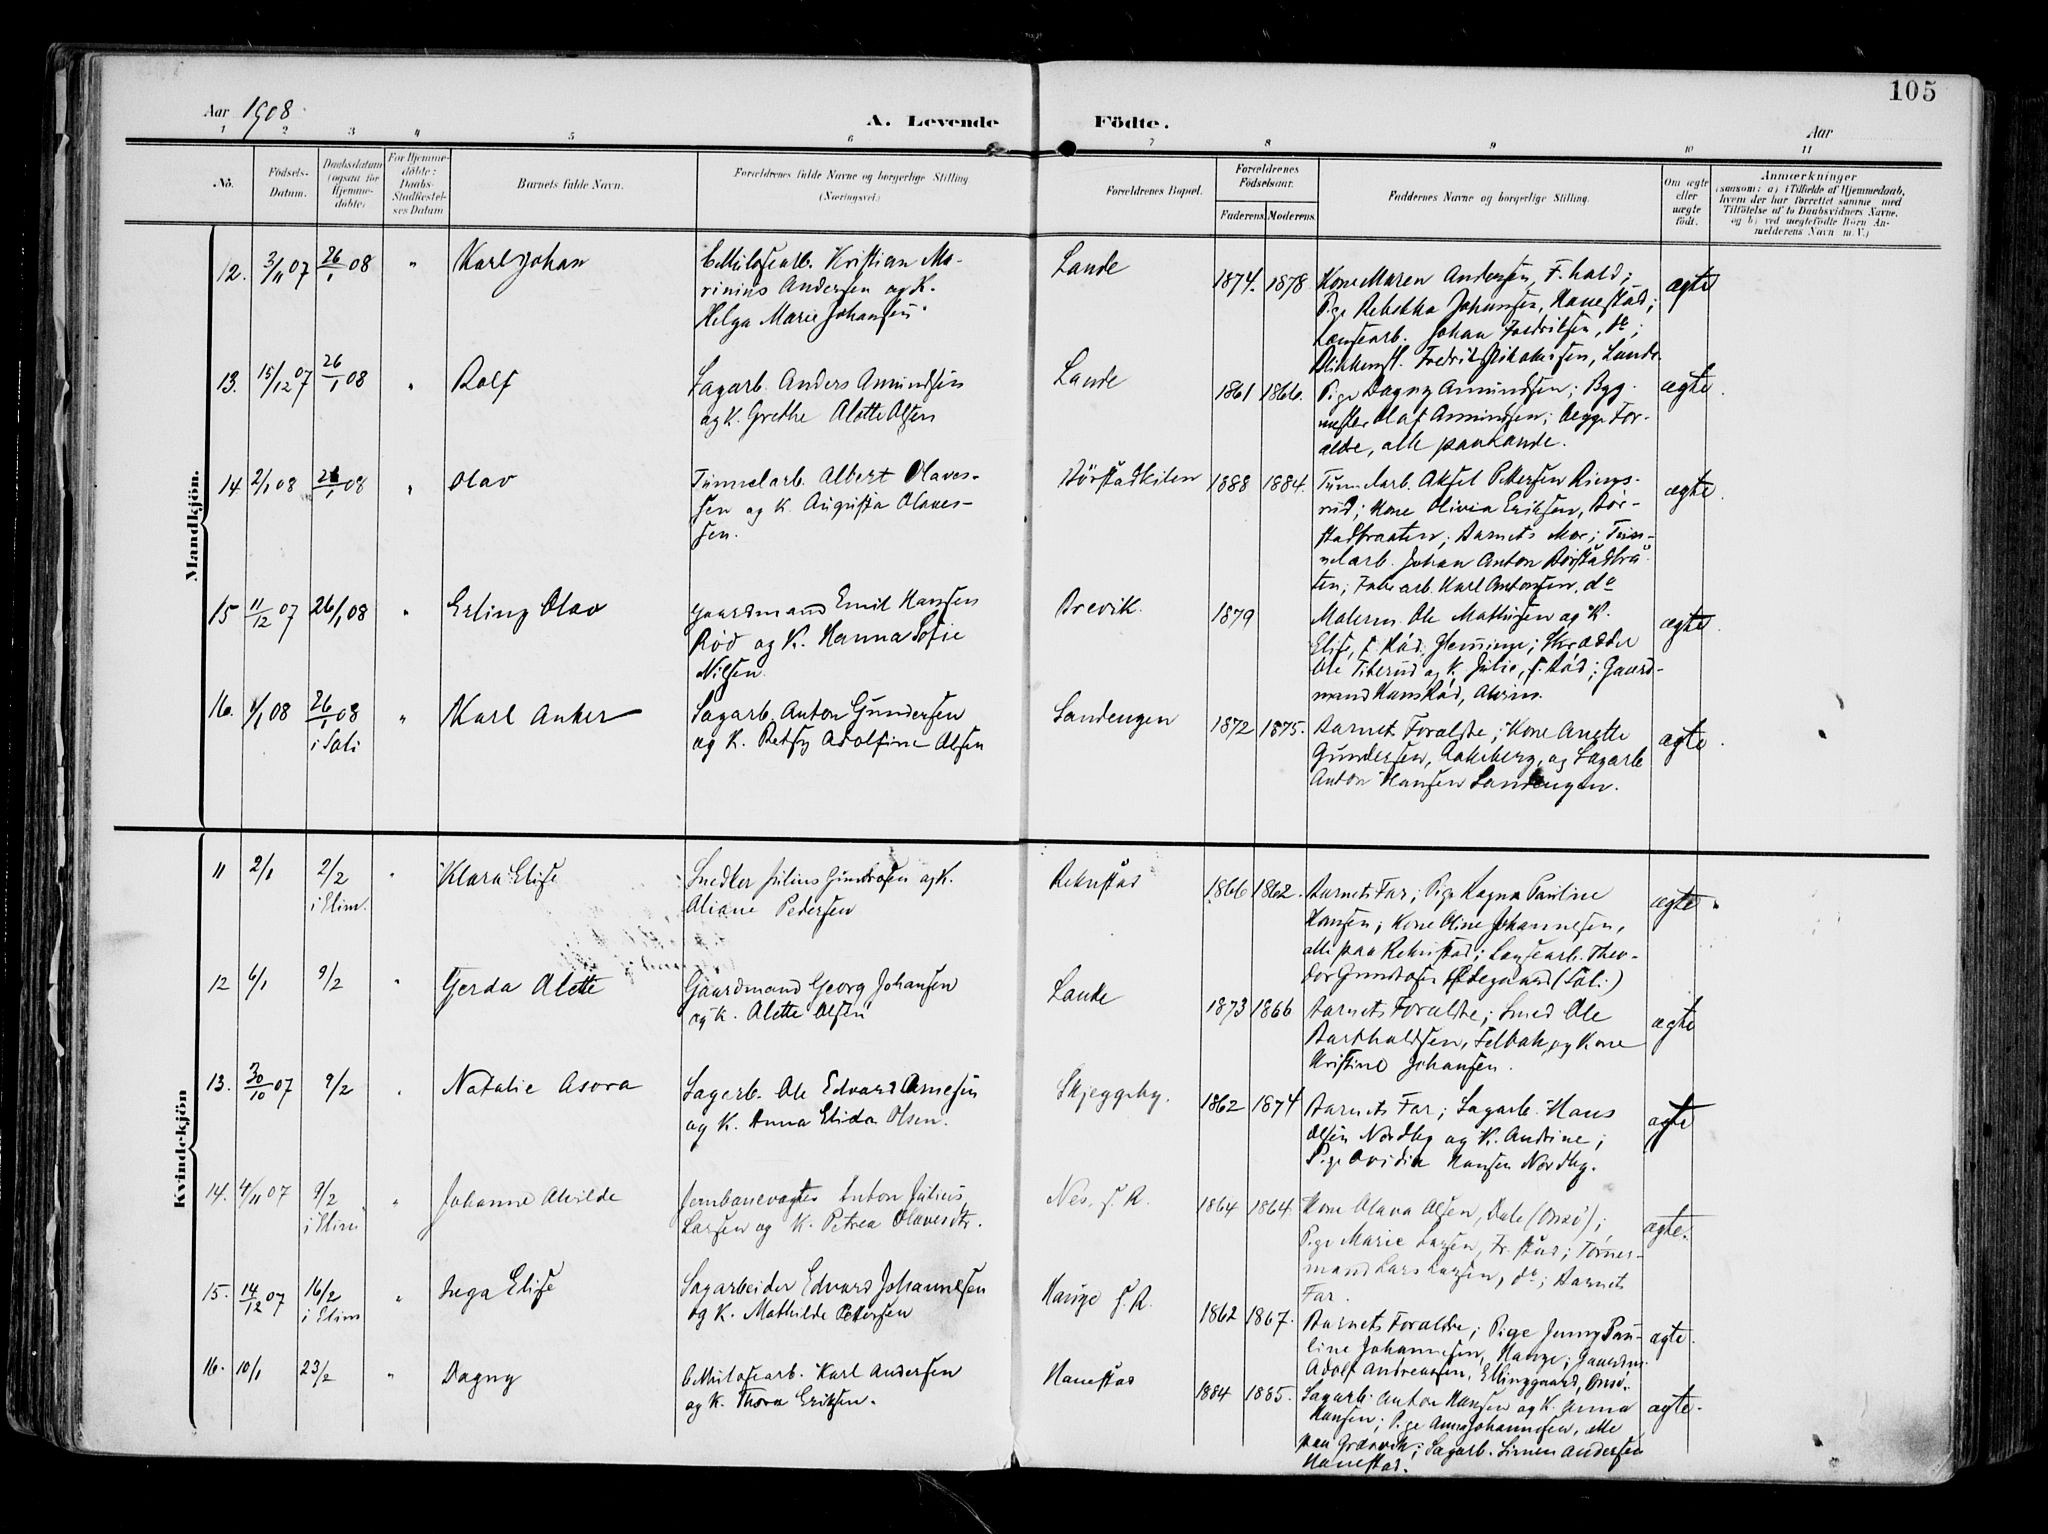 105
Aar 1908
A. Levende Födte.
Aar
1 2 3 4 5 6 7 8 9 10 11
No.
Födsels-
Datum.
Daabsdatum
(ogsaa for
Hjemme-
döbte)
For Hjemme-
döbte:
Daabs-
Stadfæstel-
ses Datum
Barnets fulde Navn.
Forældrenes fulde Navne og borgerlige Stilling
(Næringsvei.)
Forældrenes Bopæl.
Forældrenes
Födselsaar.
Faderens.
Moderens.
Faddernes Navne og borgerlige Stilling.
Om ægte
eller
uægte
födt.
Anmærkninger
(saasom: a) i Tilfælde af Hjemmedaab,
hvem der har forrettet samme, med
Tilföielse af to Daabsvidners Navne.
og b) ved uægtefödte Börn An-
melderens Navn m. V.)
Mandkjön.
12. 3/11 07 26/1 08 " Karl Johan
Kristian Ma-
rinius Andersen og K.
Helga Marie Johansen.
Lande 1874. 1878
Kone Maren Andersen, F.hald;
Pige Rebekka Johansen, Hanestad;
Lænsearb. Johan Fredriksen, do;
Lande.
ægte
13. 15/12 07 26/1 08 " Rolf
Sagarb. Anders Amundsen
og K. Grethe Alette Olsen
Lande 1861 1866.
Pige Dagny Amundsen; Byg.
mester Olaf Amundsen; Begge For-
ældre, alle paa Lande.
ægte.
14 2/1 08 26/1 08 " Olav
Tunnelarb. Albert Olaves-
sen og K. Augusta Olaves-
sen.
Börstadkilen 1888 1884.
Tunnelarb. Aksel Pettersen Rings-
rud; Kone Olivia Eriksen, Bör-
stadbraaten; Barnets Mor; Tun-
nelarb. Johan Anton Börstadbrå-
ten; Fabr arb. Karl Antonsen, do
ægte.
15 11/12 07 26/1 08 " Erling Olav
Gaardmand Emil Hansen
Röd og K. Hanna Sofie
Nilsen.
Brevik. 1879
Malerm. Ole Mathisen og K.
Elise, f. Röd, Glemminge; Skrædder
Ole Tiberud og K. Julie, f. Röd; Gaard-
mand Hans Röd,
ægte.
16. 1/1 08 26/1 08 i Soli " Karl Anker
Sagarb. Anton Gundersen
og K. Betsy Adolfine Olsen
Sandengen 1872 1875.
Barnet Forældre; Kone Anette
Gundersen, Lakeberg, og Sagarb.
Anton Hansen Sandengen.
ægte.
Kvindekjön
11 2/1 2/2 i Elim. " Klara Elise
Snedker Julius Gundersen og K.
Oliane Pedersen
Rekustad 1866 1862.
Barnets Far; Pige Ragna Pauline
Hansen; Kone Oline Johannesen,
alle paa Rekustad; Lænsearb. Theo-
dor Gundersen Ödegaard (Soli.)
ægte.
12 6/1 9/2 " Gerda Alette
Gaardmand Georg Johansen
og K. Alette Olsen
Lande 1873 1866
Barnets Forældre; Smed Ole
Bartholdsen, Felbak, og Kone
Kristine Johansen.
ægte
13. 30/10 07 9/2 " Natalie Asora
Sagarb. Ole Edvard Arnesen
og K. Anna Elida Olsen.
Skjeggeby. 1862 1874
Barnets Far; Sagarb. Hans
Olsen Nordby og K. Andrine;
Pige Ovidia Hansen Nordby.
ægte
14. 4/11 07 9/2 i Elim " Johanne Alvilde
Jernbanevogter Anton Julius
Larsen og K. Petrea Olavesdtr.
Nes, f. R. 1864 1864.
Kone Olava Olsen, Dale (Onsö);
Pige Marie Larsen, Fr.stad; Tömmer-
mand Lars Larsen, do; Barnets
Far.
ægte.
15. 14/12 07 16/2 i Elim " Inga Elise
Sagarbeider Edvard Johannesen
og K. Mathilde Petersen
Hauge f. R. 1862 1867.
Barnets Forældre; Pige Jenny Pau-
line Johannesen, Hauge; Gaardm.
Adolf Andreassen, Ellinggaard, Onsö.
ægte.
16. 10/1 23/2 " Dagny
Karl Andersen
og K. Thora Eriksen.
Hanestad 1884 1885.
Sagarb. Anton Hansen og K. Anna
Hansen; Pige Anna Johannesen, alle
paa Græsvik; Sagarb. Simen Andersen
Hanestad.
ægte.